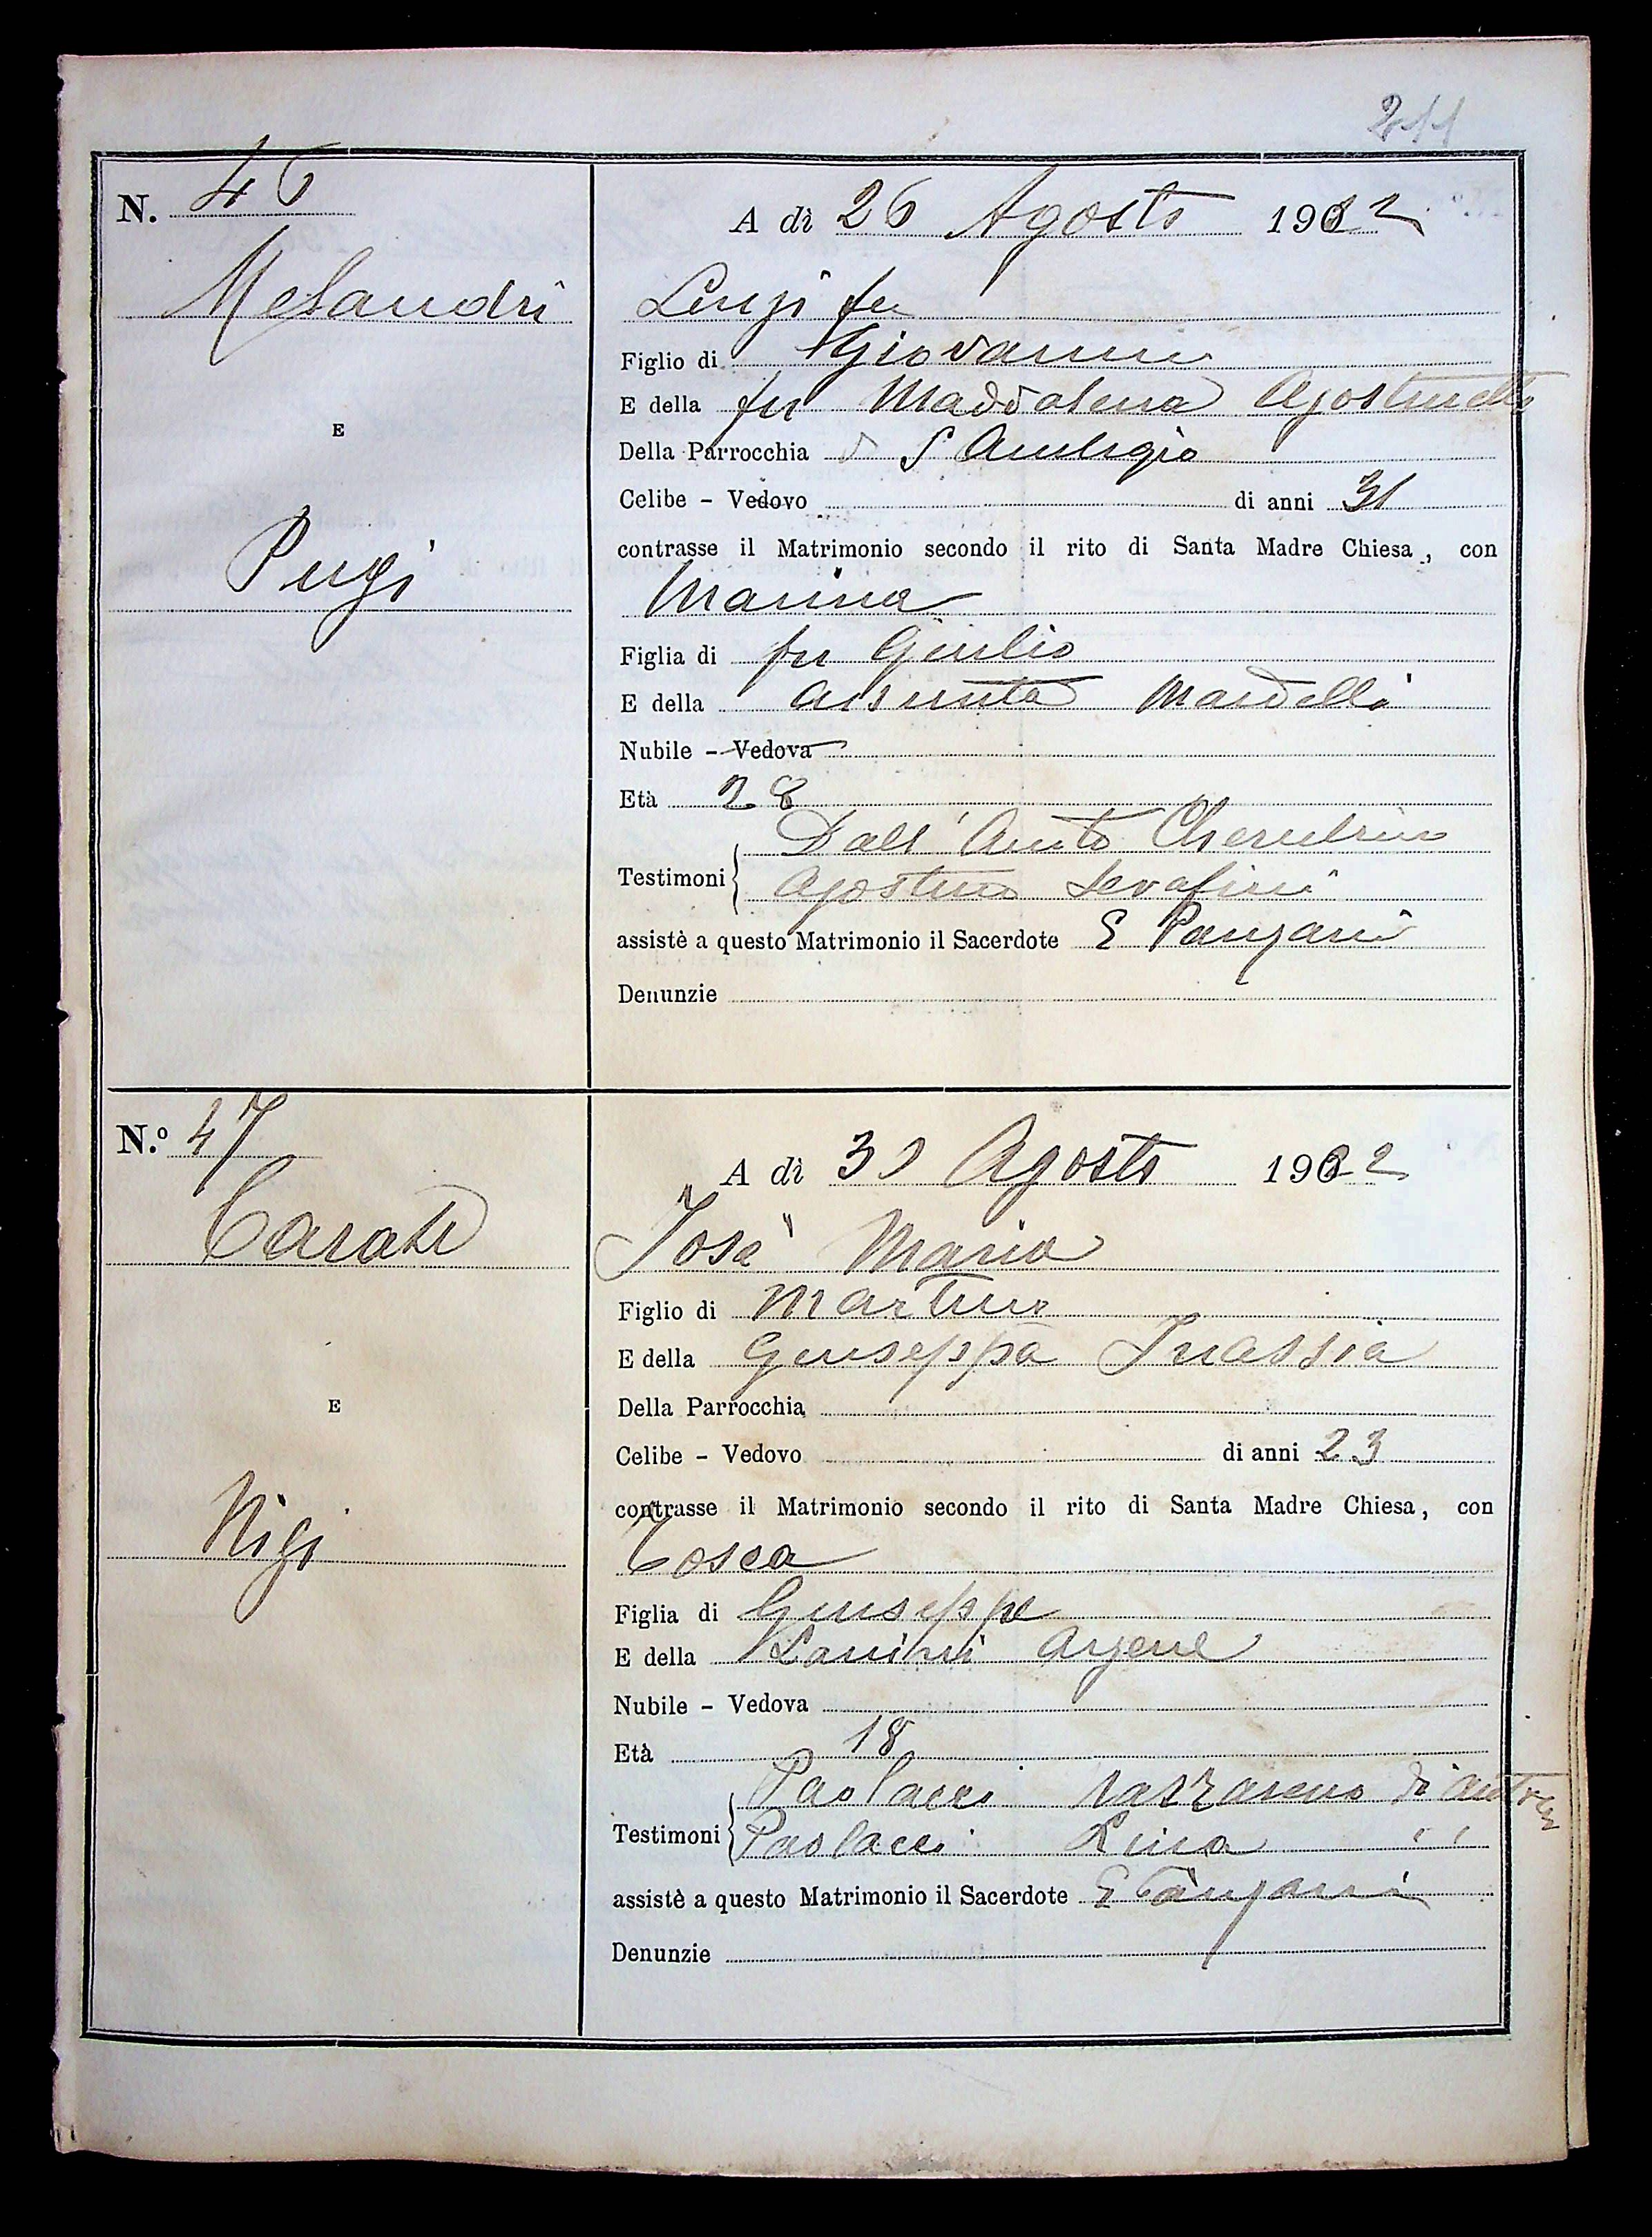 211
N. 46
A dì 26 Agosto 1922
Melandri
Luigi fu
Figlio di Giovanni
E della fu Maddalena Agostinetto
E
Della Parrocchia d S Ambrogio
Celibe - Vedovo di anni 31
contrasse il Matrimonio secondo il rito di Santa Madre Chiesa, con
Pugi
Marina
Figlia di fu Giulio
E della Assunta Mardelli
Nubile - Vedova
Età 28
Testimoni Dall' Cherubino
Agostino Serafini
assistè a questo Matrimonio il Sacerdote E Panzani
Denunzie
N.º 47
A dì 30 Agosto 1922
Carati
Josè Maria
Figlio di Martino
E della Giuseppa
E
Della Parrocchia
Celibe - Vedovo di anni 23
contrasse il Matrimonio secondo il rito di Santa Madre Chiesa, con
Nigi
Tosca
Figlia di Giuseppe
E della Argene
Nubile - Vedova
Età 18
Testimoni Paolacci Nazzareno di
Paolacci Lina " "
assistè a questo Matrimonio il Sacerdote E Panzani
Denunzie